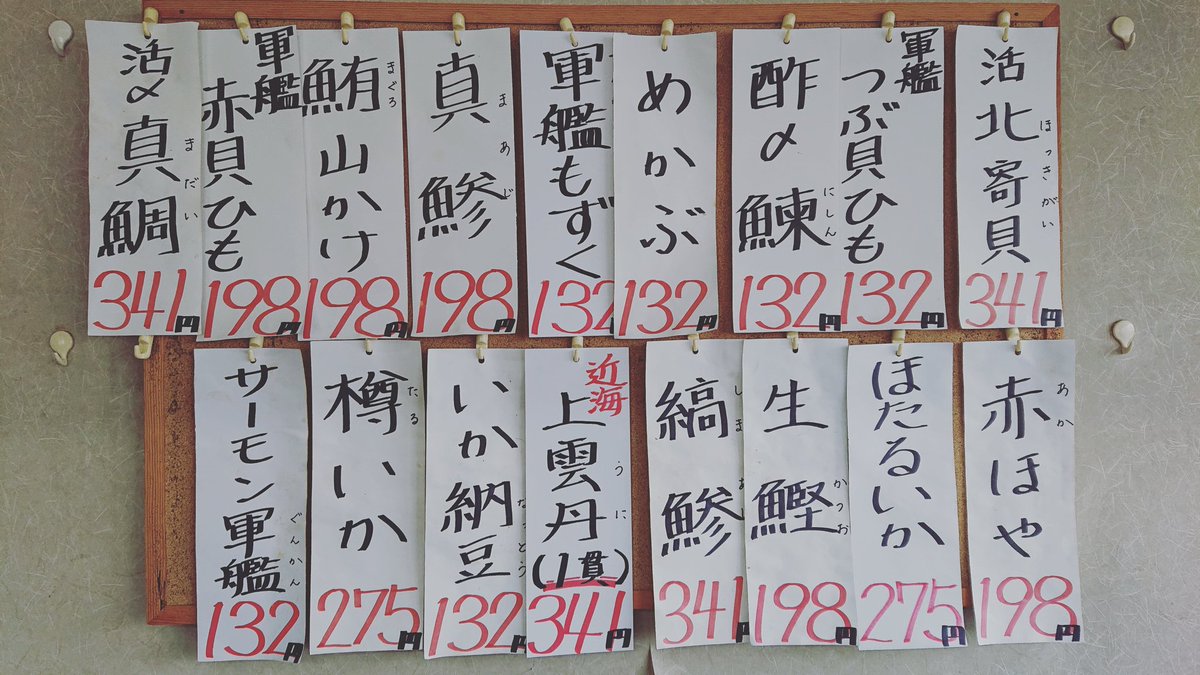 活北寄貝
ほっきがい
341円
軍艦
つぶ貝ひも
132円
酢〆鰊
にしん
132円
めかぶ
132円
軍艦もずく
132
真鯵
まあじ
198円
鮪山かけ
まぐろ
198円
軍艦
赤貝ひも
198円
活〆真鯛
まだい
341円
赤ほや
あか
198円
ほたるいか
275円
生鰹
かつお
198円
縞鯵
しまあ
341円
近海
上雲丹
うに
(1貫)
341円
いか納豆
なっとう
132円
樽いか
たる
275円
サーモン軍艦
ぐんかん
132円